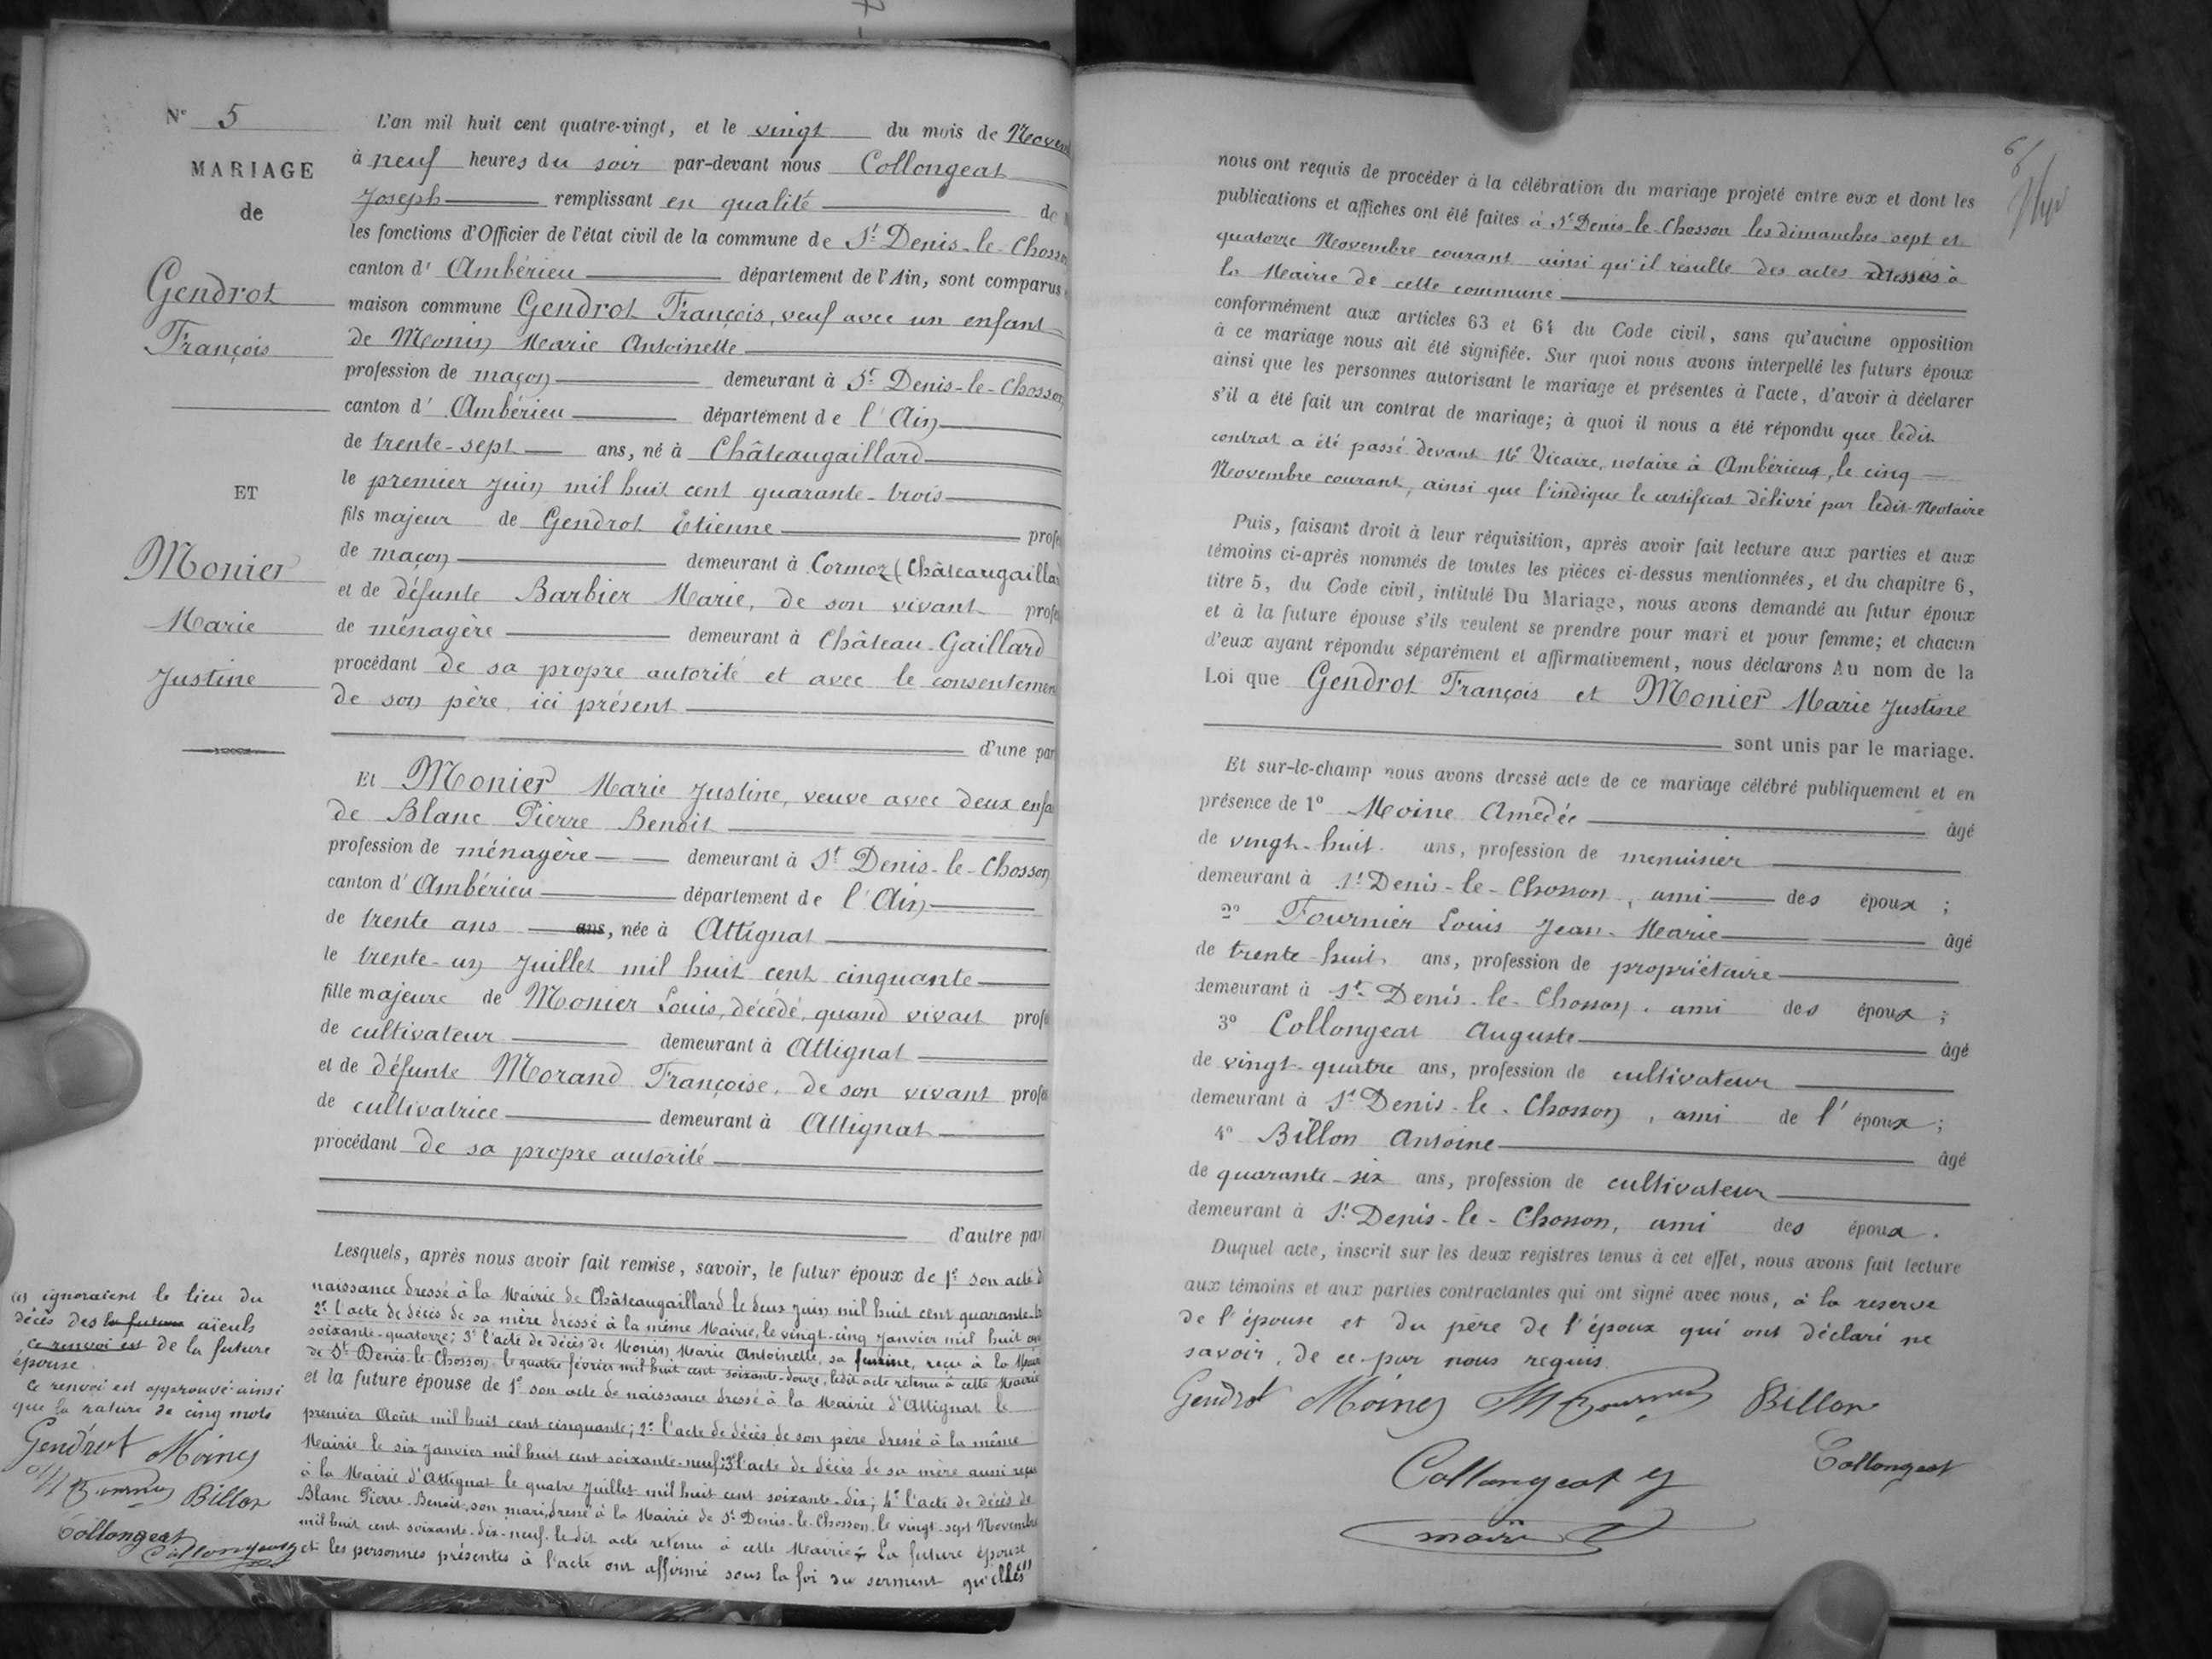 N° 5
MARIAGE
de
Gendrot
François
ET
Monier
Marie
Justine
L'an mil huit cent quatre-vingt, et le vingt du mois de Novem
à neuf heures du soir par-devant nous Collongeat
Joseph remplissant en qualité de
les fonctions d'Officier de l'état civil de la commune de St Denis-le-Chosson
canton d' Ambérieu département de l'Ain, sont comparus
maison commune Gendrot François, veuf avec un enfant
de Monin Marie Antoinette
profession de maçon demeurant à St Denis-le-Chosson
canton d' Ambérieu département de l'Ain
de trente-sept ans, né à Châteaugaillard
le premier Juin mil huit cent quarante-trois
fils majeur de Gendrot Etienne profe
de maçon demeurant à Cormoz (Châteaugaillar
et de défunte Barbier Marie, de son vivant profe
de ménagère demeurant à Château-Gaillard
procédant de sa propre autorité et avec le consentemen
de son père, ici présent
d'une par
Et Monier Marie Justine, veuve avec deux enfa
de Blanc Pierre Benoit
profession de ménagère demeurant à St Denis-le-Chosson
canton d' Ambérieu département de l'Ain
de trente ans ans, née à Attignat
le trente-un Juillet mil huit cent cinquante
fille majeure de Monier Louis, décédé, quand vivait profe
de cultivateur demeurant à Attignat
et de défunte Morand Françoise, de son vivant profe
de cultivatrice demeurant à Attignat
procédant de sa propre autorité
d'autre par
Lesquels, après nous avoir fait remise, savoir, le futur époux de 1° son acte d
naissance dressé à la Mairie de Châteaugaillard le deux Juin mil huit cent quarante-tr
2° l'acte de décès de sa mère dressé à la même Mairie, le vingt-cinq Janvier mil huit cen
soixante-quatorze; 3° l'acte de décès de Monin Marie Antoinette, sa femme, reçu à la Mairie
de St Denis-le-Chosson le quatre février mil huit cent soixante-douze, ledit acte retenu à cette Mairie
et la future épouse de 1° son acte de naissance dressé à la Mairie d'Attignat le
premier Août mil huit cent cinquante; 2° l'acte de décès de son père dressé à la même
Mairie le six Janvier mil huit cent soixante-neuf; 3° l'acte de décès de sa mère aussi reçu
à la Mairie d'Attignat le quatre Juillet mil huit cent soixante-dix; 4° l'acte de décès de
Blanc Pierre-Benoit, son mari, dressé à la Mairie de St Denis-le-Chosson le vingt-sept Novembre
mil huit cent soixante-dix-neuf, le dit acte retenu à cette Mairie; La future épouse
et les personnes présentes à l'acte ont affirmé sous la foi du serment qu'elles (1)
(1) ignoraient le lieu du
décès des la future aïeuls
ce renvoi est de la future
épouse.
Ce renvoi est approuvé ainsi
que la rature de cinq mots
Gendrot Moine
Fournier Billon
Collongeat
Collongeat
6
nous ont requis de procéder à la célébration du mariage projeté entre eux et dont les
publications et affiches ont été faites à St Denis-le-Chosson les dimanches sept et
quatorze Novembre courant ainsi qu'il résulte des actes dressés à
la Mairie de cette commune
conformément aux articles 63 et 64 du Code civil, sans qu'aucune opposition
à ce mariage nous ait été signifiée. Sur quoi nous avons interpellé les futurs époux
ainsi que les personnes autorisant le mariage et présentes à l'acte, d'avoir à déclarer
s'il a été fait un contrat de mariage; à quoi il nous a été répondu que ledit
contrat a été passé devant Me Vicaire, notaire à Ambérieu, le cinq
Novembre courant, ainsi que l'indique le certificat délivré par ledit Notaire
Puis, faisant droit à leur réquisition, après avoir fait lecture aux parties et aux
témoins ci-après nommés de toutes les pièces ci-dessus mentionnées, et du chapitre 6,
titre 5, du Code civil, intitulé Du Mariage, nous avons demandé au futur époux
et à la future épouse s'ils veulent se prendre pour mari et pour femme; et chacun
d'eux ayant répondu séparément et affirmativement, nous déclarons Au nom de la
Loi que Gendrot François et Monier Marie Justine
sont unis par le mariage.
Et sur-le-champ nous avons dressé acte de ce mariage célébré publiquement et en
présence de 1° Moine Amédée âgé
de vingt-huit ans, profession de menuisier
demeurant à St Denis-le-Chosson, ami des époux ;
2° Fournier Louis Jean-Marie âgé
de trente-huit ans, profession de propriétaire
demeurant à St Denis-le-Chosson, ami des époux ;
3° Collongeat Auguste âgé
de vingt-quatre ans, profession de cultivateur
demeurant à St Denis-le-Chosson, ami de l'époux ;
4° Billon Antoine âgé
de quarante-six ans, profession de cultivateur
demeurant à St Denis-le-Chosson, ami des époux.
Duquel acte, inscrit sur les deux registres tenus à cet effet, nous avons fait lecture
aux témoins et aux parties contractantes qui ont signé avec nous, à la reserve
de l'épouse et du père de l'époux qui ont déclaré ne
savoir, de ce par nous requis.
Gendrot Moine Fournier Billon
Collongeat
Collongeat
maire